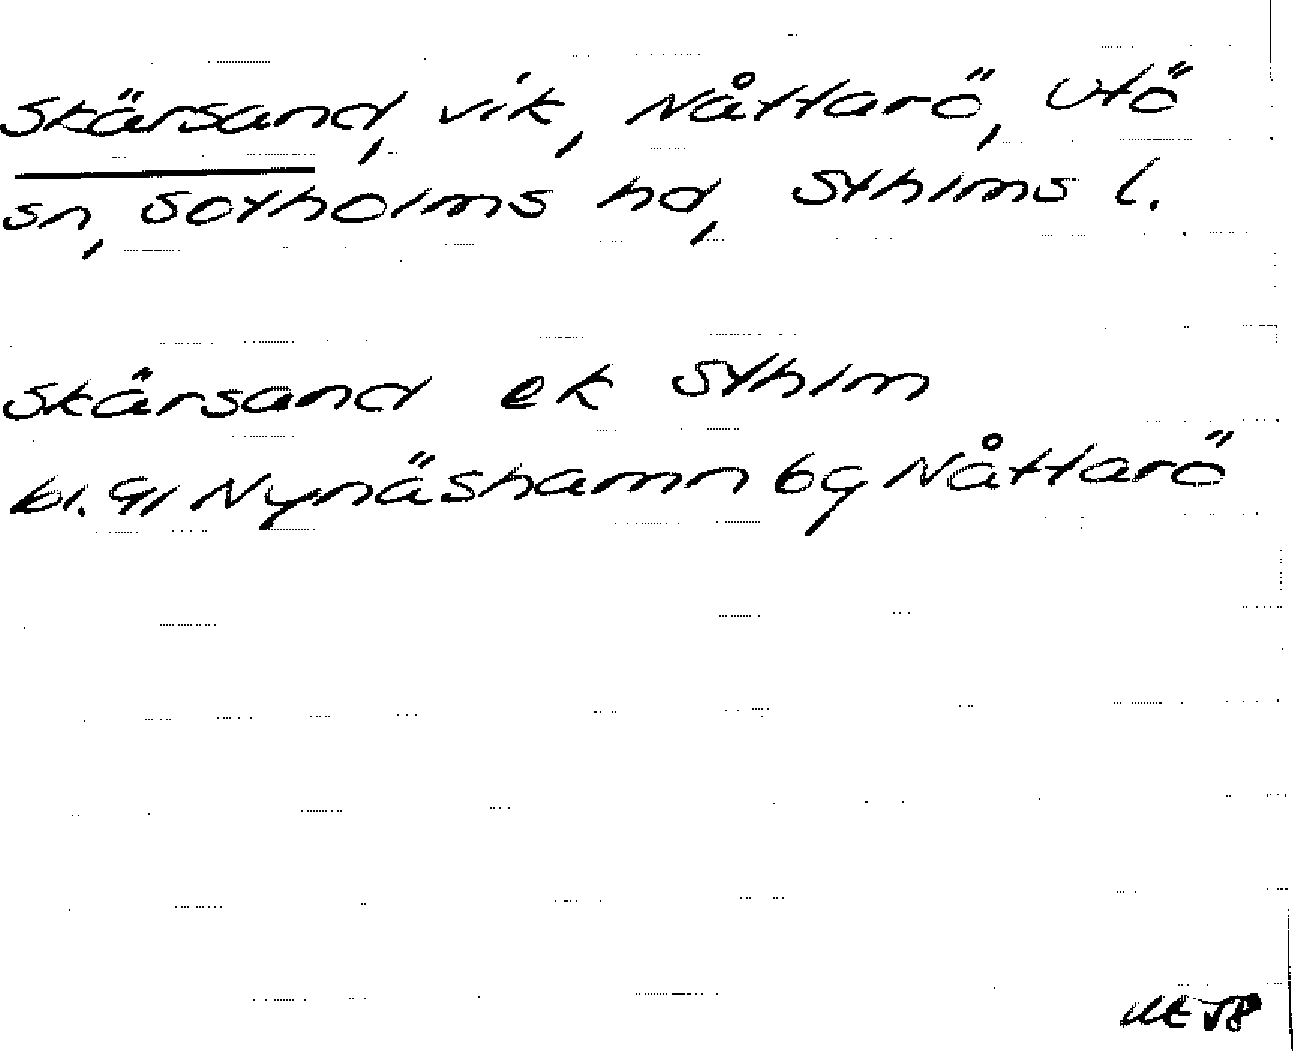 Skärsand, vik, Nåttarö, Utö
sn, Sotholms hd, Sthlms l.
Skärsand ek Sthlm
bl. 91 Nynäshamn bg Nåttarö